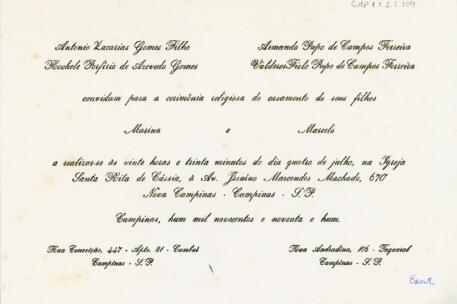 CMP 1.2.1.104
Antonio Zacarias Gomes Filho
Rochele Porfírio de Azevedo Gomes
Armando Papo de Campos Ferreira
Valderes Fiolo Papo de Campos Ferreira
convidam para a cerimônia religiosa do casamento de seus filhos
Marina e Marcelo
a realizar-se às vinte horas e trinta minutos do dia quatro de julho, na Igreja
Santa Rita de Cássia, à Av. Jesuíno Marcondes Machado, 670
Nova Campinas - Campinas - S.P.
Campinas, hum mil novecentos e noventa e hum.
Rua Conceição, 447 - Apto. 31 - Cambuí
Campinas - S.P.
Rua Andradina, 106 - Taquaral
Campinas - S.P.